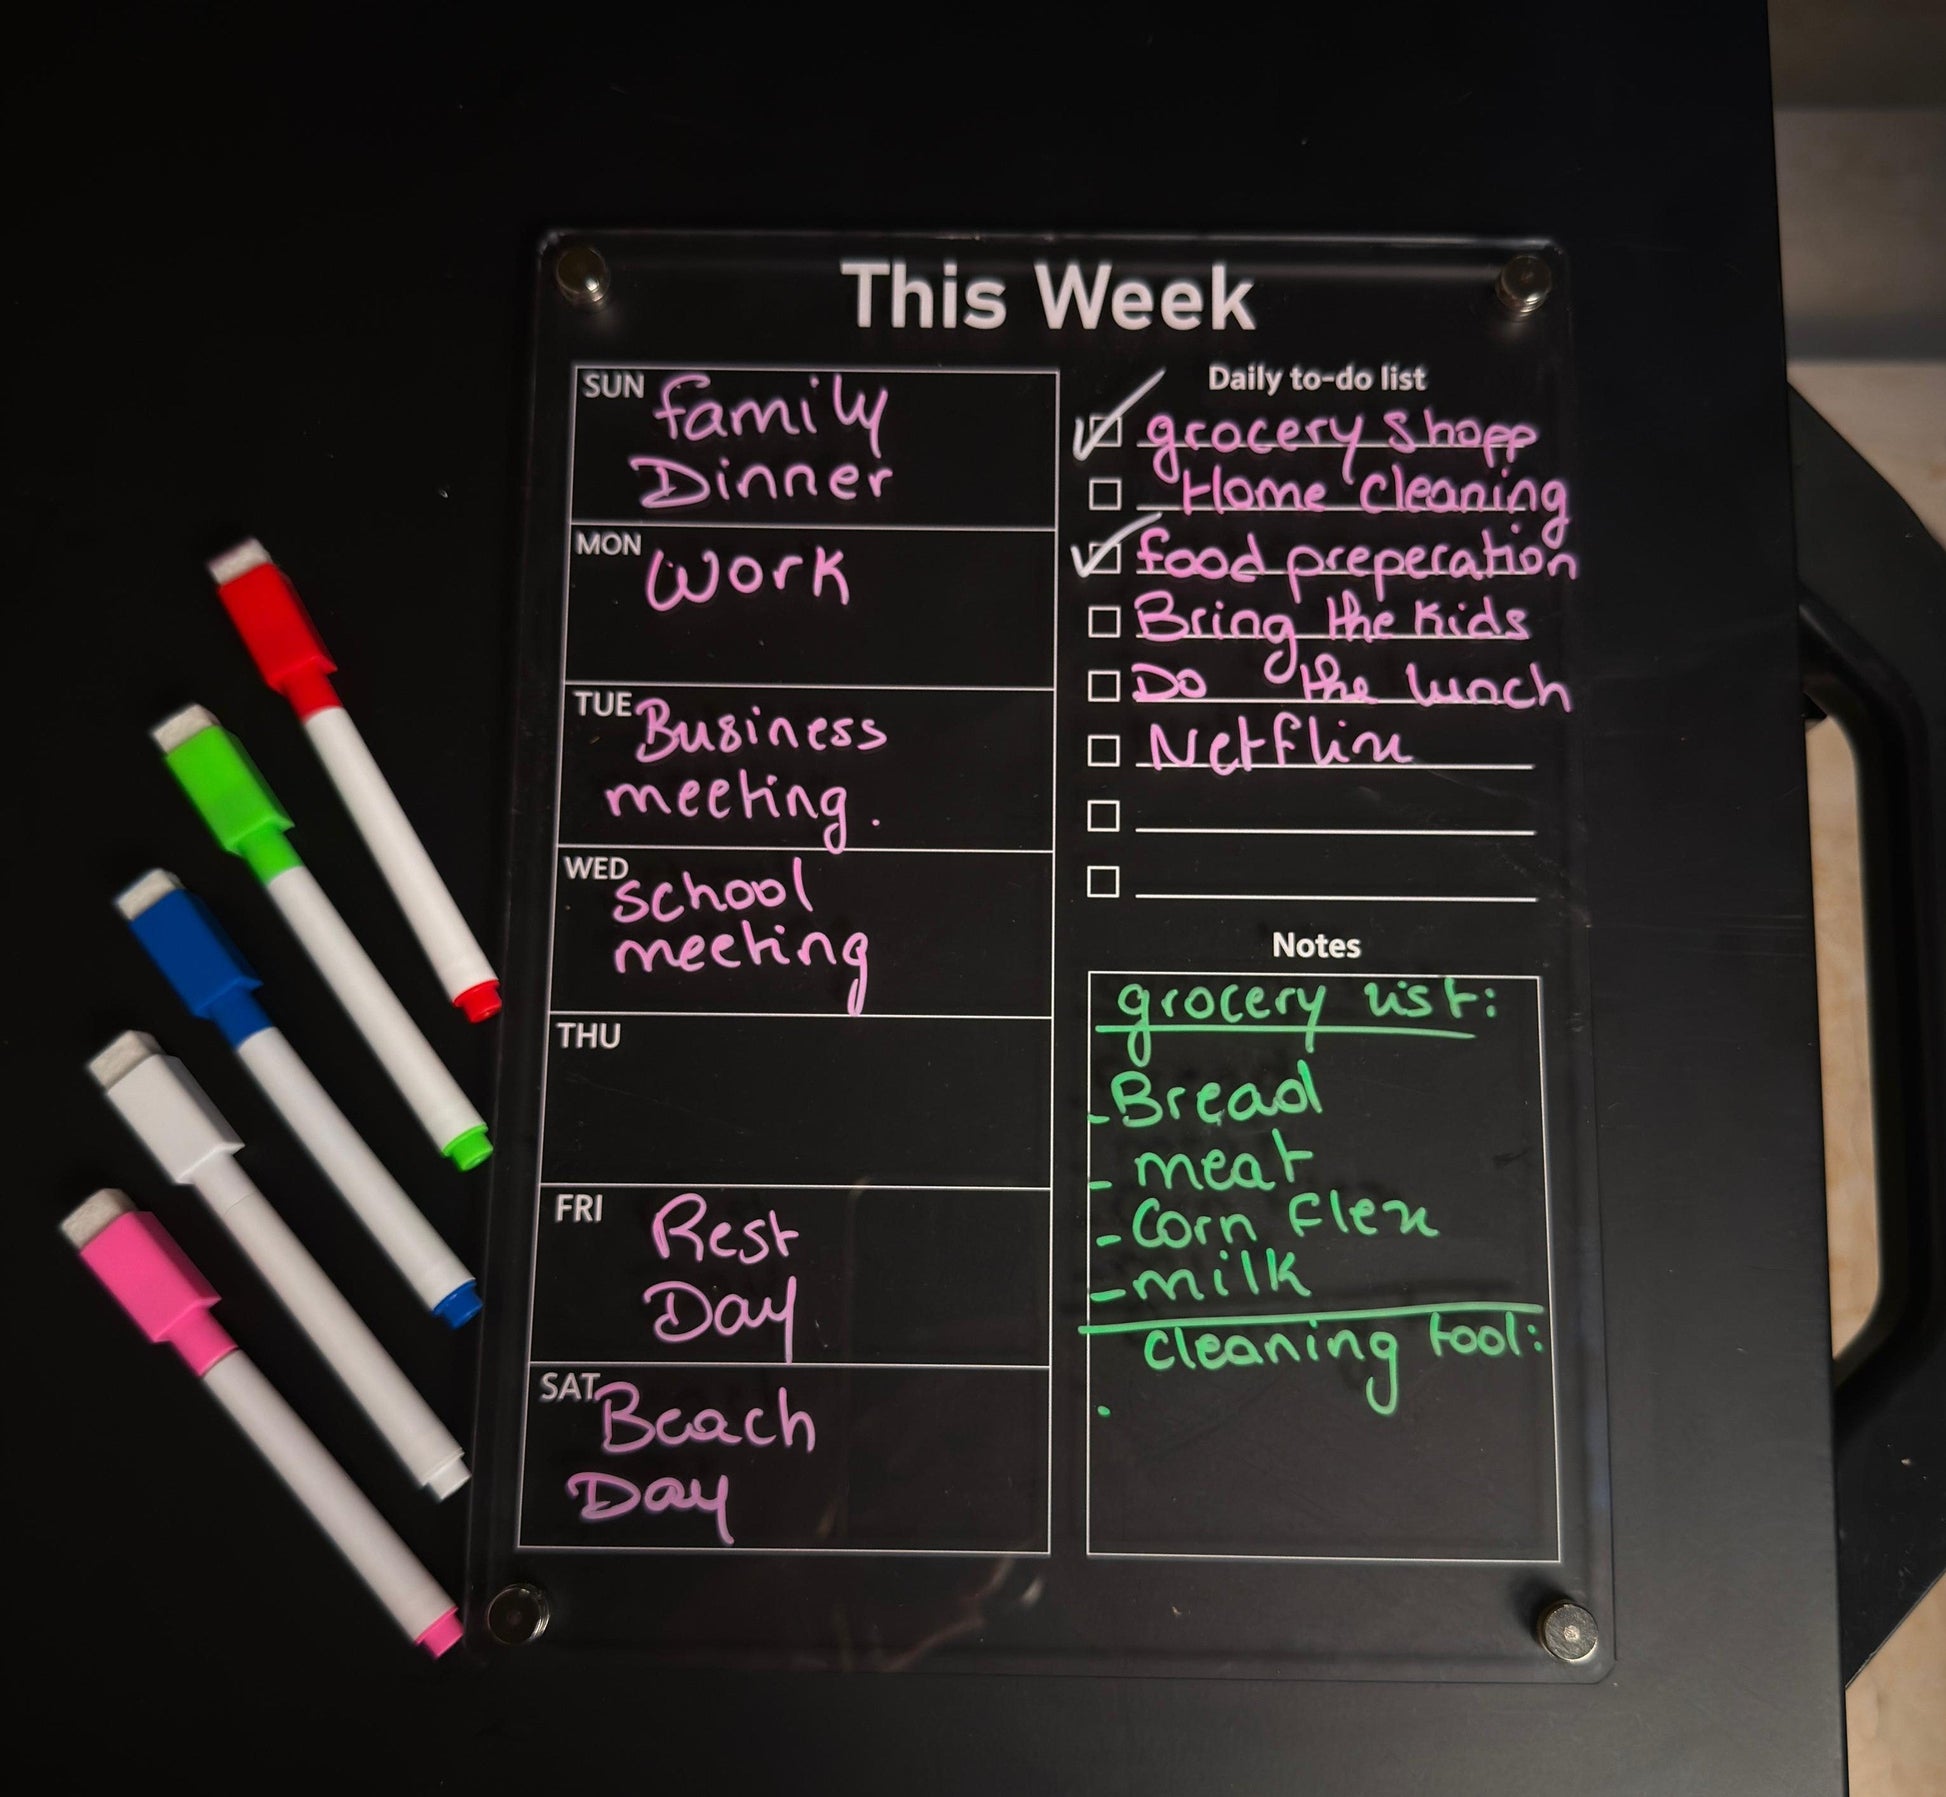 This Week
SUN
family
Dinner
MON
Work
TUE
Business
meeting.
WED
school
meeting
THU
FRI
Rest
Day
SAT
Beach
Day
Daily to-do list
grocery shopp
Home cleaning
food preperation
Bring the kids
Do the lunch
Netflix
Notes
grocery list:
-Bread
- meat
- Corn flex
- milk
cleaning tool:
.